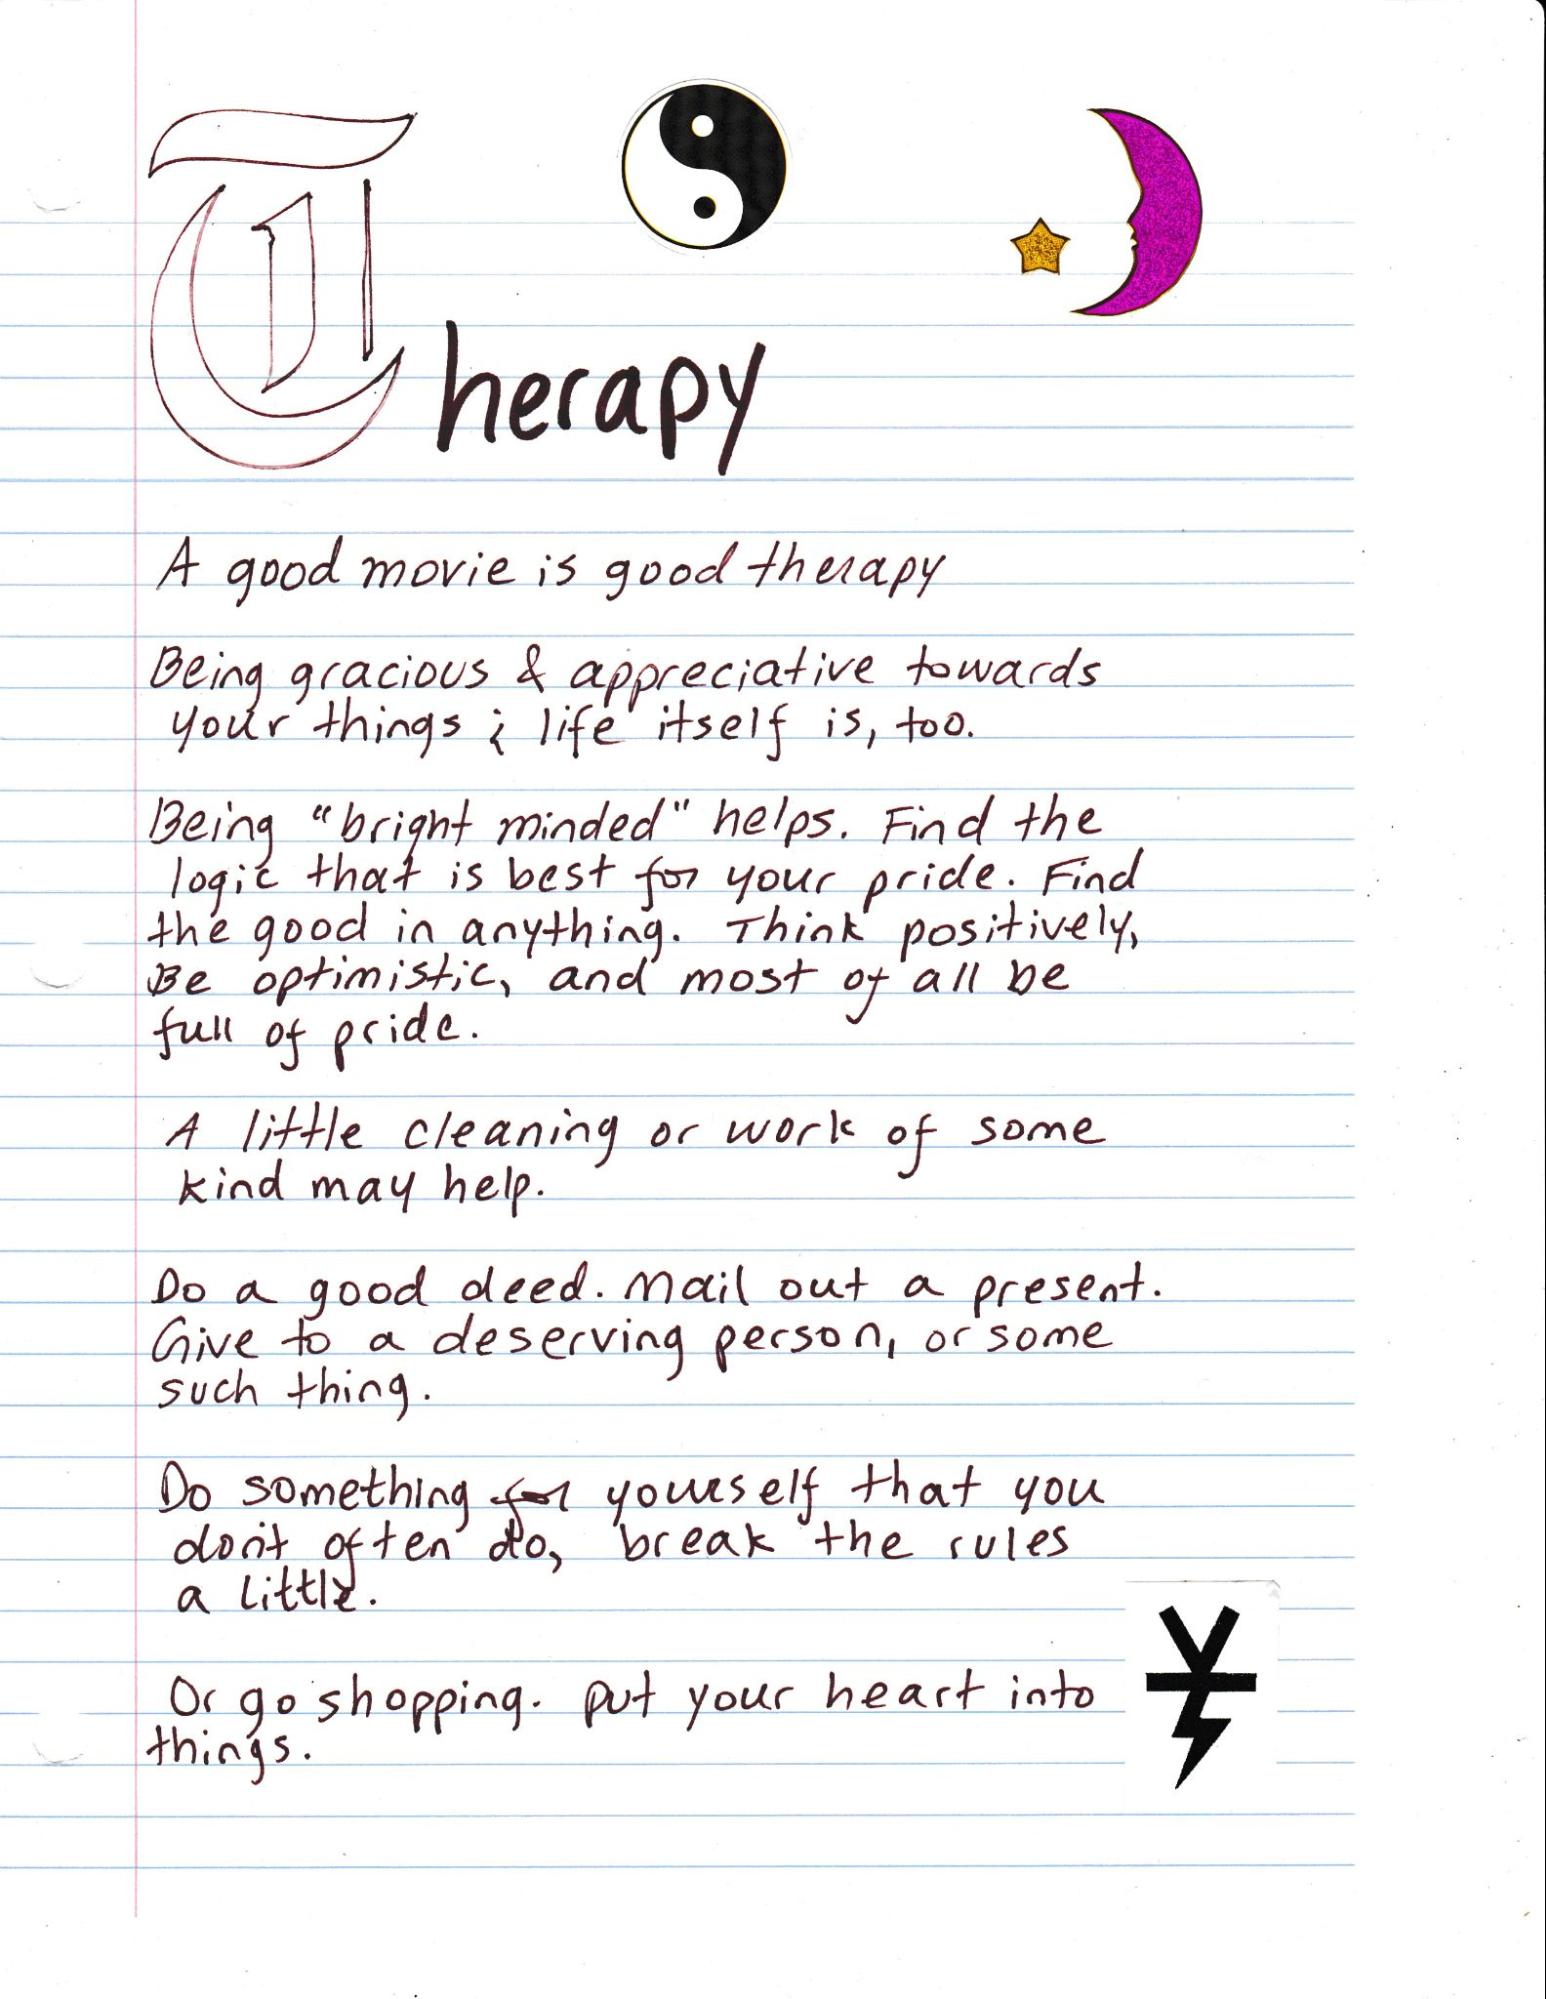 Therapy
A good movie is good therapy
Being gracious & appreciative towards
your things & life itself is, too.
Being "bright minded" helps. Find the
logic that is best for your pride. Find
the good in anything. Think positively,
Be optimistic, and most of all be
full of pride.
A little cleaning or work of some
kind may help.
Do a good deed. Mail out a present.
Give to a deserving person, or some
such thing.
Do something for yourself that you
don't often do, break the rules
a little.
Or go shopping. put your heart into
things.